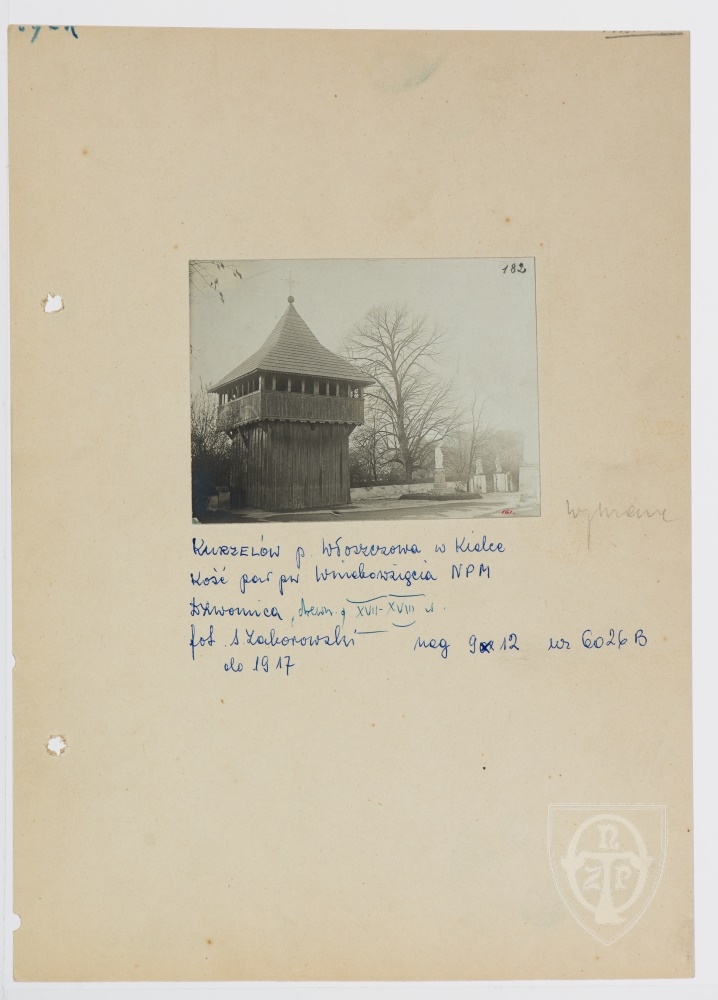 182
161.
KURZELÓW p. Włoszczowa w Kielce
Kość par pw Wniebowzięcia NPM
Dzwonnica, drewn. XVII-XVIII w.
fot. S Zaborowski neg 9x12 nr 6026 B
do 1917
N
Z P